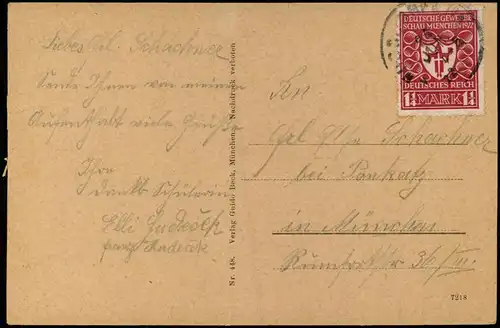 Liebes Frl. Schachner
Sende Ihnen von meinem
Aufenthalt viele Grüße
Ihre
dankb. Schülerin
Elli
Nr. 448. Verlag Guido Beck, München. Nachdruck verboten
DEUTSCHE GEWERBE
SCHAU MÜNCHEN 1922
DEUTSCHES REICH
1¼ MARK 1¼
An
Frl. Schachner
bei Pankatz
in München
Rumfordstr 36/III.
7218